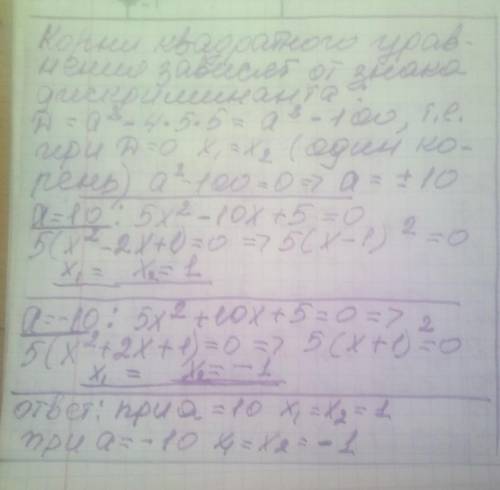 Корни квадратного урав-
нения зависят от знака
дискриминанта:
D = a² - 4·5·5 = a² - 100, т.е.
при D=0 x₁=x₂ (один ко-
рень) a²-100=0 => a = ±10
a=10: 5x²-10x+5=0
5(x²-2x+1)=0 => 5(x-1)²=0
x₁= x₂=1
a=-10: 5x²+10x+5=0 =>
5(x²+2x+1)=0 => 5(x+1)²=0
x₁ = x₂=-1
ответ: при a=10 x₁=x₂=1
при a=-10 x₁=x₂=-1